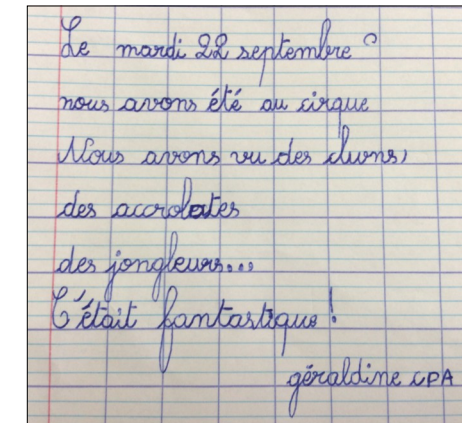 Le mardi 22 septembre
nous avons été au cirque
Nous avons vu des clwns,
des accrobates
des jongleurs...
C'était fantastique!
géraldine CPA